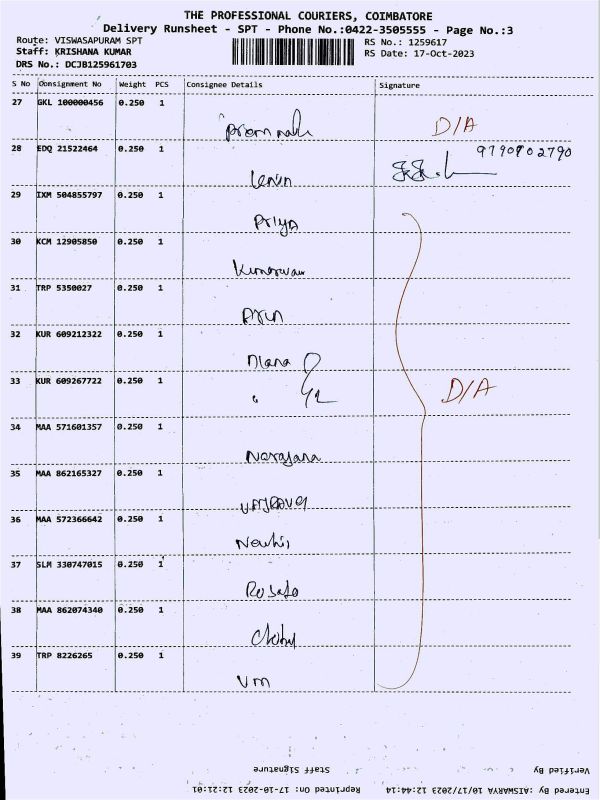 THE PROFESSIONAL COURIERS, COIMBATORE
Delivery Runsheet - SPT - Phone No.:0422-3505555 - Page No.:3
Route: VISWASAPURAM SPT
RS No.: 1259617
Staff: KRISHANA KUMAR
RS Date: 17-Oct-2023
DRS No.: DCJB125961703
S No Consignment No Weight PCS Consignee Details Signature
27 GKL 100000456 0.250 1
Prem nath D/A
28 EDQ 21522464 0.250 1 9790802790
Lenin
29 IXM 504855797 0.250 1
Priya
30 KCM 12905850 0.250 1
31 TRP 5350027 0.250 1
Arun
32 KUR 609212322 0.250 1
33 KUR 609267722 0.250 1
D/A
34 MAA 571601357 0.250 1
Narayana
35 MAA 862165327 0.250 1
36 MAA 572366642 0.250 1
37 SLM 330747015 0.250 1
38 MAA 862074340 0.250 1
39 TRP 8226265 0.250 1
Vm
Staff Signature Verified By
Entered By :AISHARYA 10/17/2023 12:44:14 Reprinted On: 17-10-2023 12:21:01